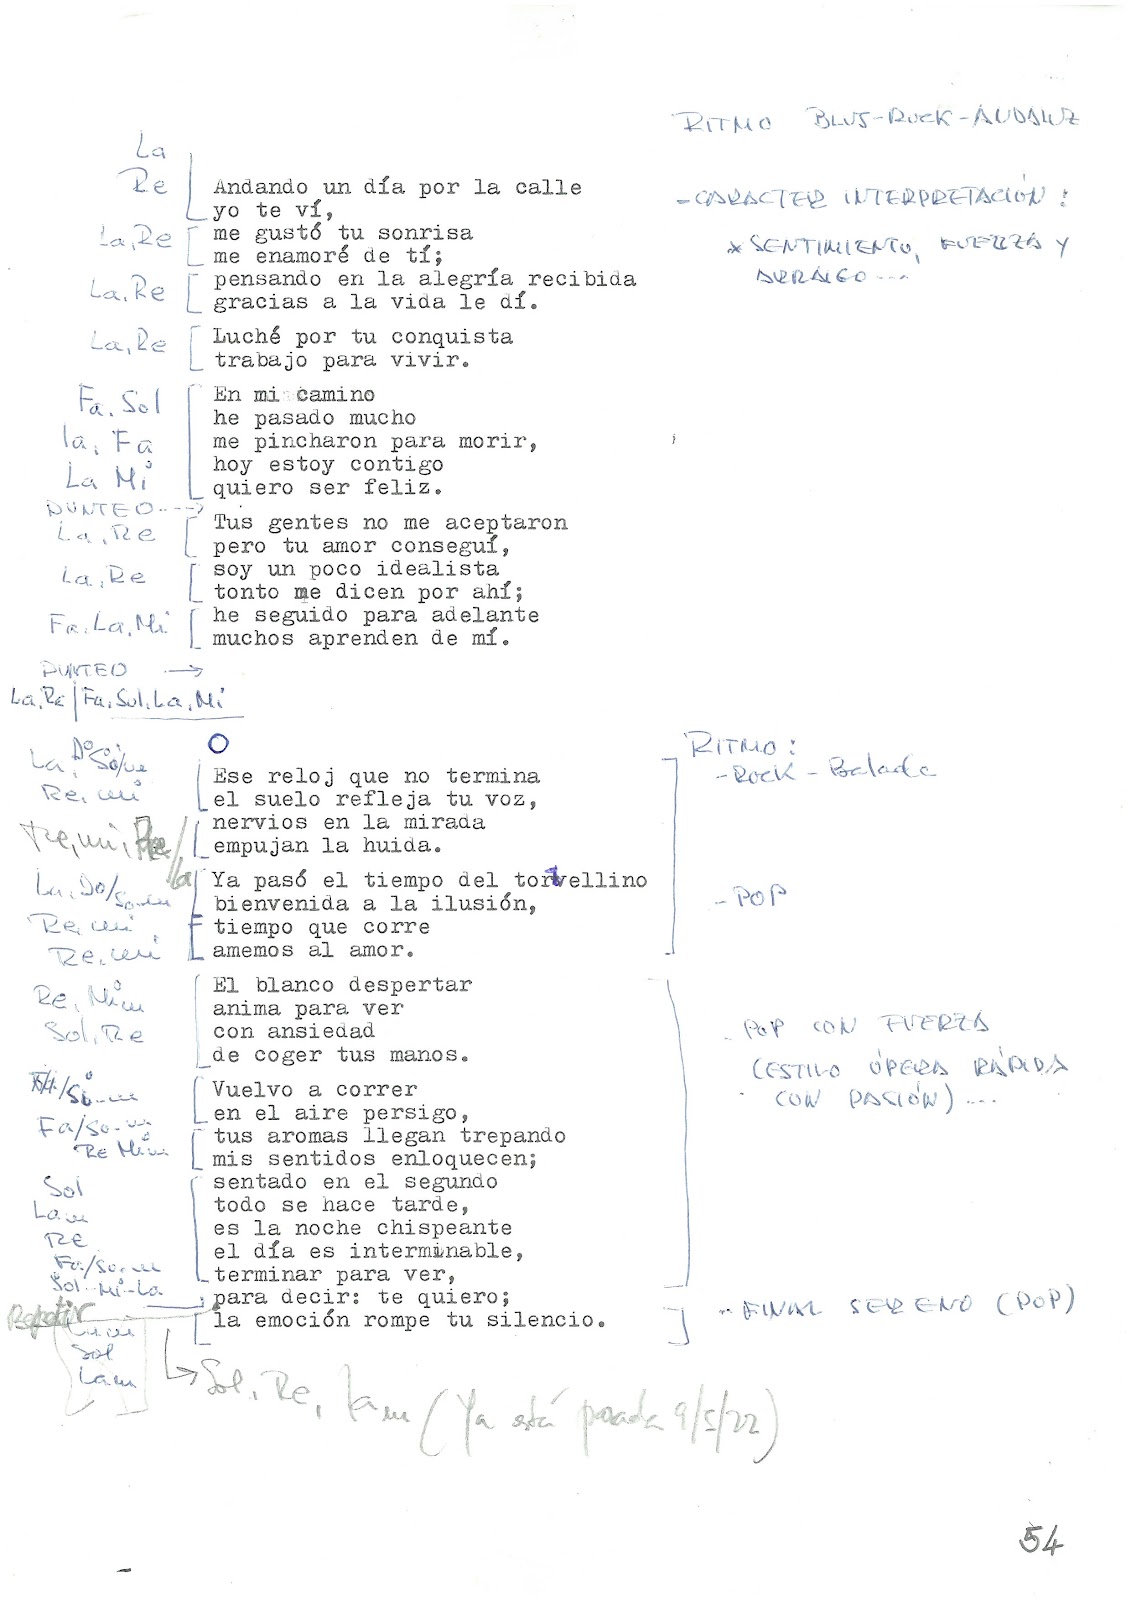 RITMO BLUS-ROCK-ANDALUZ
La
Re
Andando un día por la calle
yo te ví,
- CARACTER INTERPRETACIÓN:
* SENTIMIENTO, FUERZA Y
ARRAIGO...
La, Re
me gustó tu sonrisa
me enamoré de tí;
La, Re
pensando en la alegría recibida
gracias a la vida le dí.
La, Re
Luché por tu conquista
trabajo para vivir.
Fa, Sol
la, Fa
La Mi
En mi camino
he pasado mucho
me pincharon para morir,
hoy estoy contigo
quiero ser feliz.
PUNTEO --->
La, Re
Tus gentes no me aceptaron
pero tu amor conseguí,
La, Re
soy un poco idealista
tonto me dicen por ahí;
Fa, La, Mi
he seguido para adelante
muchos aprenden de mí.
PUNTEO →
La, Re | Fa, Sol, La, Mi
RITMO:
- ROCK - Balada
Re, mi
Ese reloj que no termina
el suelo refleja tu voz,
nervios en la mirada
empujan la huida.
Re, mi,
La, Do/
Re, mi
Re, mi
Ya pasó el tiempo del torvellino
bienvenida a la ilusión,
tiempo que corre
amemos al amor.
- POP
Re, Mim
Sol, Re
El blanco despertar
anima para ver
con ansiedad
de coger tus manos.
- POP CON FUERZA
(ESTILO ÓPERA RÁPIDA
CON PASIÓN)...
Vuelvo a correr
en el aire persigo,
Re Mim
tus aromas llegan trepando
mis sentidos enloquecen;
Sol
Lam
RE
Sol - Mi - La
sentado en el segundo
todo se hace tarde,
es la noche chispeante
el día es interminable,
terminar para ver,
para decir: te quiero;
la emoción rompe tu silencio.
- FINAL SERENO (POP)
Repetir
Sol
Lam
Sol, Re, Lam (Ya está pasada 9/5/22)
54